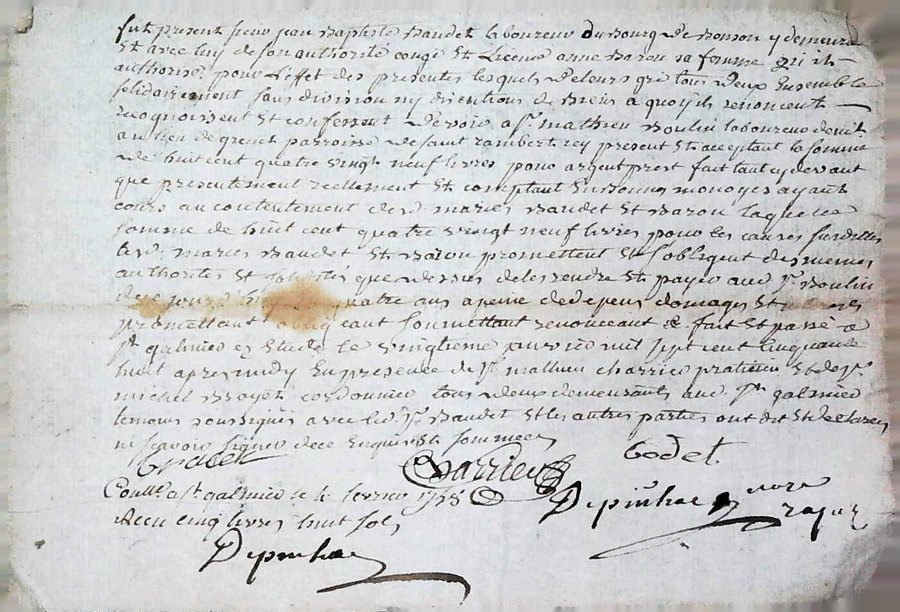 fut present sieur jean Baptiste Baudet laboureur du Bourg de Bonson y demeurant
Et avec luy de son authorité congé Et Licence anne Baron sa femme qu'il
authorise pour L'effet des presentes lesquels de leurs gré tous deux Ensemble
solidairement sans division ny discutions de Biens a quoy ils renoncent
recognoissent Et confessent devoir a sr mathieu Boulin laboureur
au lieu de parroisse de saint rambert icy present Et acceptant la somme
de huit cent quatre vingt neuf livres pour argent prest fait tant cy devant
que presentement reellement Et comptant En Bonne monoyes ayant
cours au contentement des d. mariés Baudet Et Baron laquelle
somme de huit cent quatre vingt neuf livres pour les causes susdittes
lesd. mariés Baudet Et Baron promettent Et s'obligent des memes
authorités Et solidités que dessus de les rendre Et payer aud. sr Boulin
de ce jourd quatre ans a peine de depens domages Et
promettant soumettant renonceant &c fait Et passé a
st galmier Estude le vingtieme janvier mil sept cent cinquante
huit apres midy En presence de sr mathieu charrier praticien Et de sr
michel Bayet cordonnier tous deux demeurants aud. st galmier
temoins soussignés avec led. sr Baudet Et les autres parties ont dit Et declarer
ne sçavoir signer de ce Enquis Et sommés
Charrier Godet
Conllé a st galmier le fevrier 1758 Depinhac nore
Reçu cinq livres huit sols royal
Depinhac